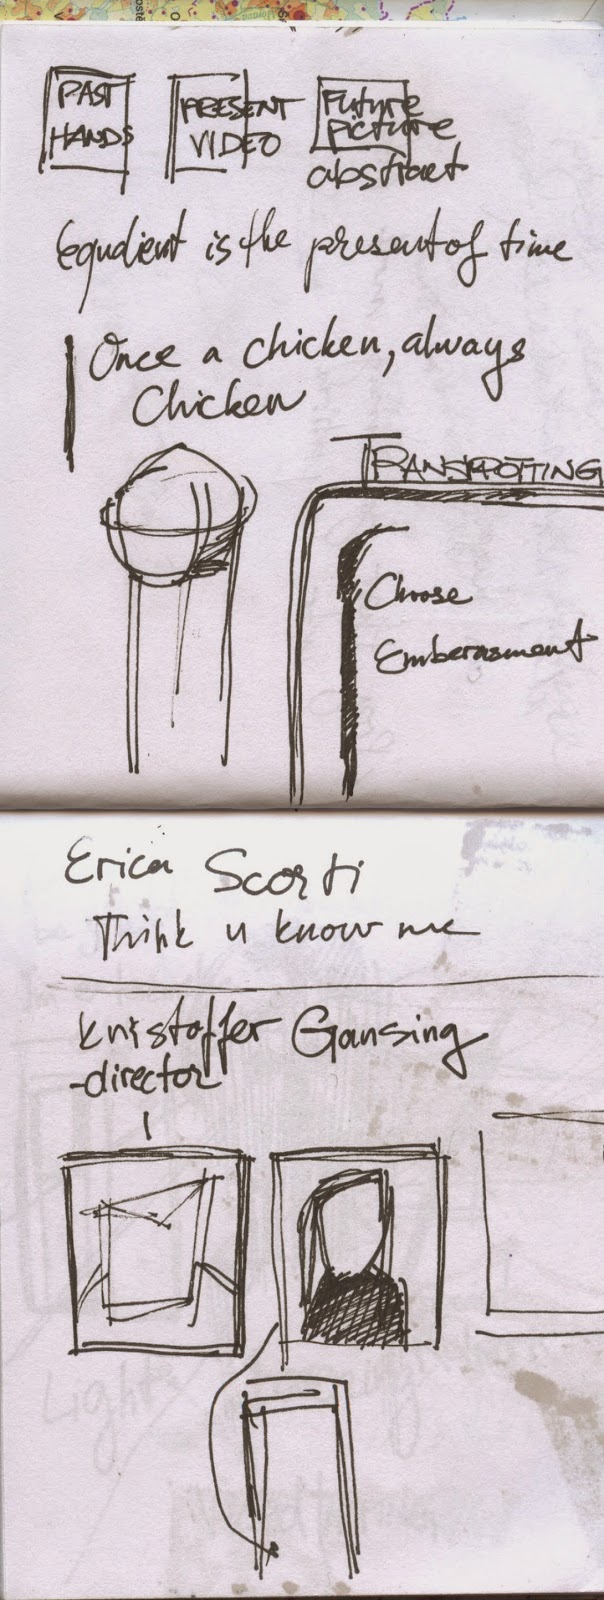 PAST
HANDS
PRESENT
VIDEO
Future
picture
abstract
is the present of time
Once a chicken, always
Chicken
Choose
Emberasment
Erica Scorti
Think u know me
Kristoffer Gansing
-director
Light